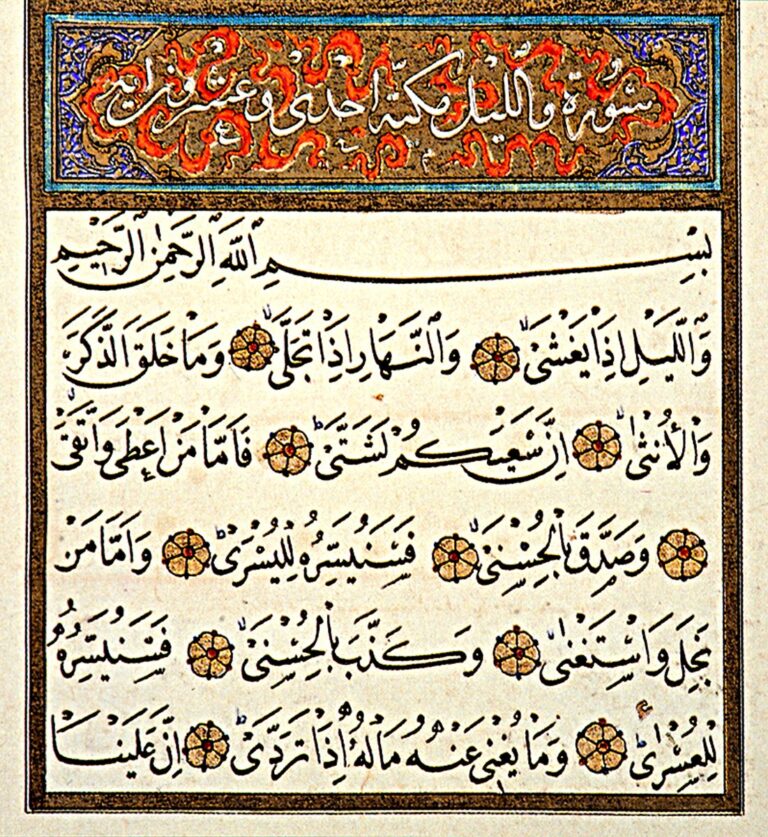 سُورَةُ وَالَّيْلِ مَكِّيَّةٌ اِحْدٰى وَعِشْرُونَ اٰيَةً
بِسْمِ اللّٰهِ الرَّحْمٰنِ الرَّحِيمِ
وَالَّيْلِ اِذَا يَغْشٰى وَالنَّهَارِ اِذَا تَجَلّٰى وَمَا خَلَقَ الذَّكَرَ
وَالْاُنْثٰى اِنَّ سَعْيَكُمْ لَشَتّٰى فَاَمَّا مَنْ اَعْطٰى وَاتَّقٰى
وَصَدَّقَ بِالْحُسْنٰى فَسَنُيَسِّرُهُ لِلْيُسْرٰى وَاَمَّا مَنْ
بَخِلَ وَاسْتَغْنٰى وَكَذَّبَ بِالْحُسْنٰى فَسَنُيَسِّرُهُ
لِلْعُسْرٰى وَمَا يُغْنِى عَنْهُ مَالُهُ اِذَا تَرَدّٰى اِنَّ عَلَيْنَا